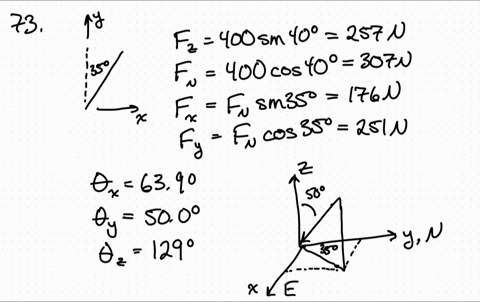 73.
y
35°
x
F_z = 400 sin 40° = 257 N
F_N = 400 cos 40° = 307 N
F_x = F_N sin 35° = 176 N
F_y = F_N cos 35° = 251 N
θ_x = 63.9°
θ_y = 50.0°
θ_z = 129°
z
50°
35°
y, N
x E